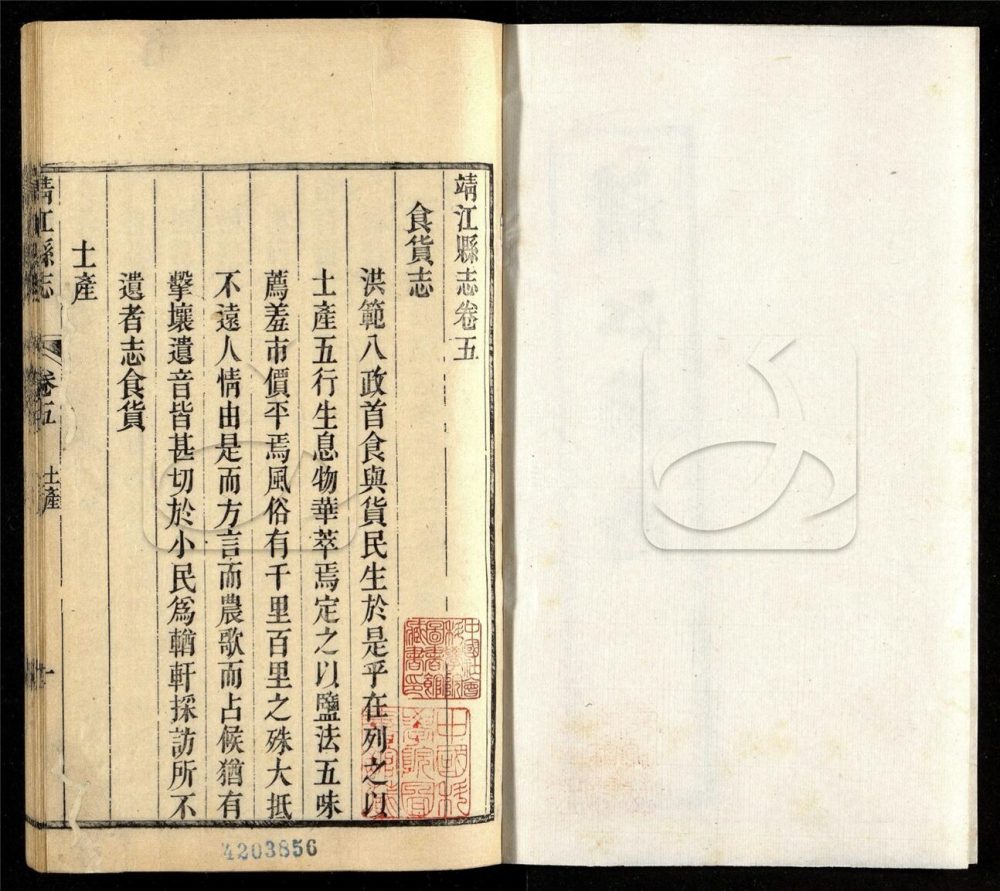 靖江縣志卷五
食貨志
洪範八政首食與貨民生於是乎在列之以
土產五行生息物華萃焉定之以鹽法五味
薦羞市價平焉風俗有千里百里之殊大抵
不遠人情由是而方言而農歌而占候猶有
擊壤遺音皆甚切於小民爲輶軒採訪所不
遺者志食貨
土產
靖江縣志
卷五
土產
一
中國社會
科學院
圖書館
藏書印
4203856